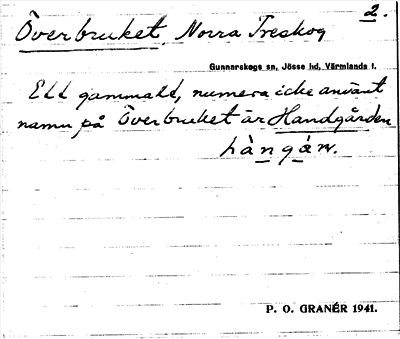 2.
Överbruket, Norra Treskog
Gunnarskogs sn, Jösse hd, Värmlands l.
Ett gammalt, numera icke använt
namn på Överbruket är Handgården
hàngáṛ̣.
P. O. GRANÉR 1941.